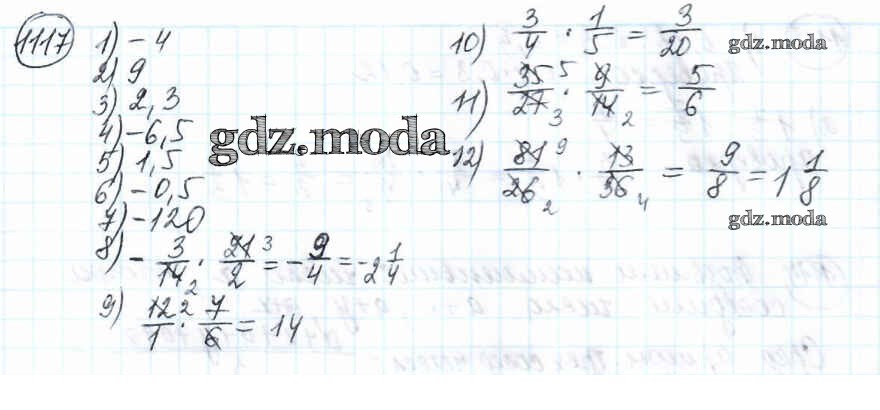 1117
1) -4
2) 9
3) 2,3
4) -6,5
5) 1,5
6) -0,5
7) -120
8) -3/14 2 · 21 3/2 = -9/4 = -2 1/4
9) 12 2/1 · 7/6 = 14
10) 3/4 · 1/5 = 3/20
11) 35 5/27 3 · 9/14 2 = 5/6
12) 81 9/26 2 · 13/36 4 = 9/8 = 1 1/8
gdz.moda
gdz.moda
gdz.moda